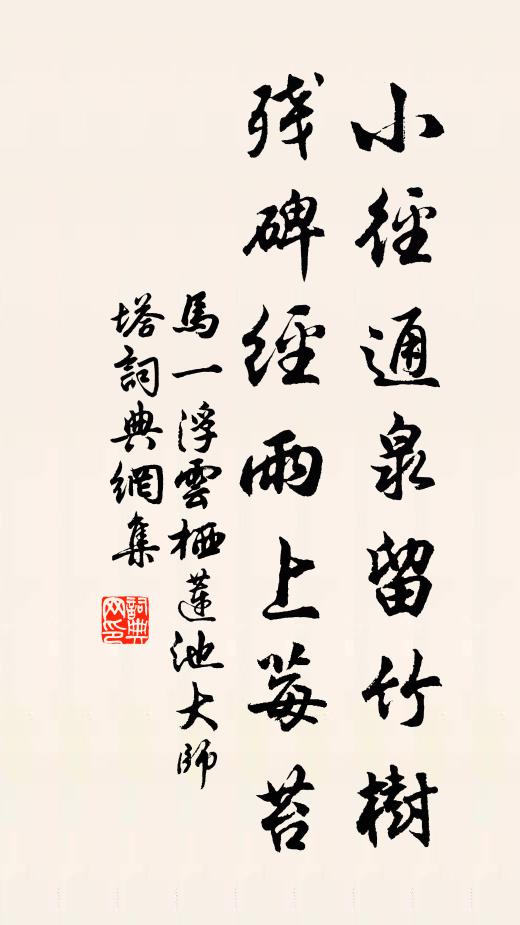 小徑通泉留竹樹
殘碑經雨上莓苔
馬一浮雲栖蓮池大師
塔詞典網集
詞典网印